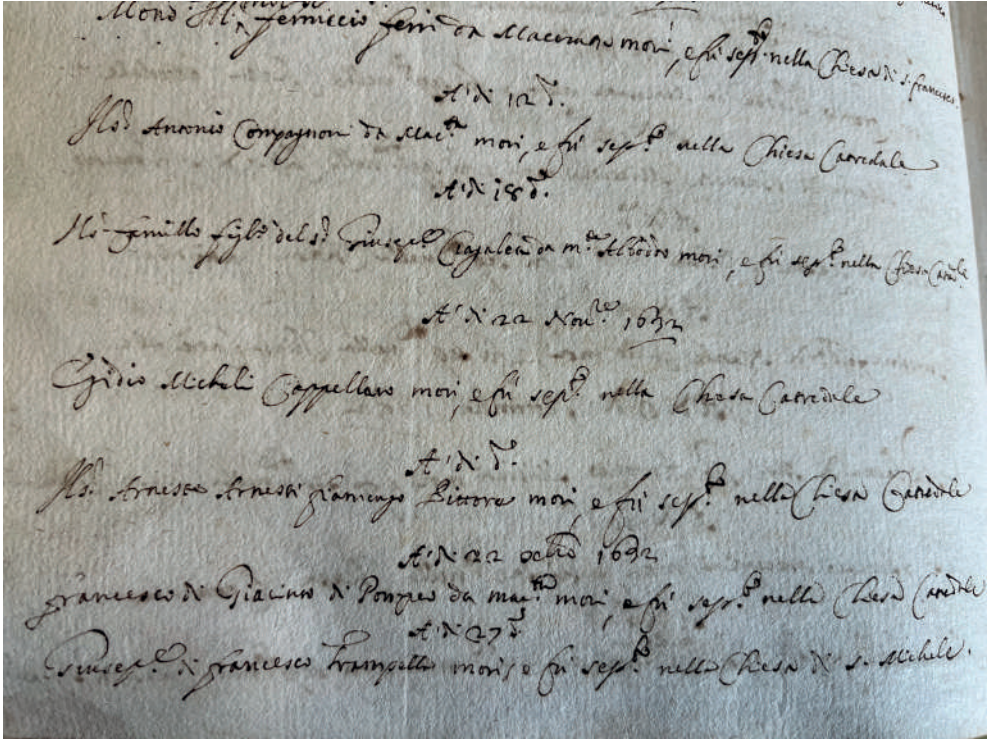 ferruccio ferri da Macerata morì, e fù sep.to nella Chiesa di s. francesco.
A' dì 12 d.o
Il s.r Antonio Compagnoni da Mac.ta morì, e fù sep.to nella Chiesa Catredale
A' dì 18 d.o
Il s.r Camillo figl.o del s.r Giusep.e da m.te morì, e fù sep.to nella Chiesa
A' dì 22 Nov.re 1632
Egidio Micheli Cappellaro morì, e fù sep.to nella Chiesa Catredale
A' dì d.o
Il s.r Arnesto Arnesti fiamengo Pittore morì, e fù sep.to nella Chiesa Catredale
A' dì 22 1632
francesco di Giacinto di Pompeo da mac.ta morì, e fù sep.to nella Chiesa Catredale
A' dì 27 d.o
Giusep.e di francesco morì, e fù sep.to nella Chiesa di s. Michele.